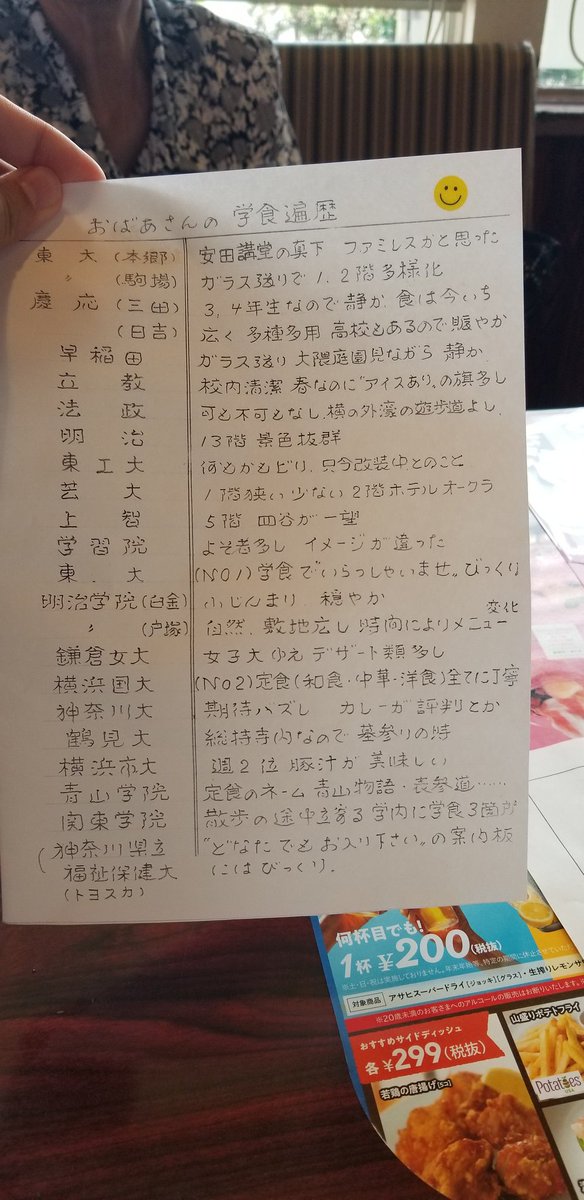 おばあさんの 学食遍歴
東大(本郷) 安田講堂の真下 ファミレスかと思った
〃(駒場) ガラス張りで1,2階多様化
慶応(三田) 3,4年生なので静か、食は今いち
(日吉) 広く 多種多用 高校もあるので賑やか
早稲田 ガラス張り 大隈庭園見ながら 静か、
立教 校内清潔 春なのに"アイスあり"の旗多し
法政 可も不可もなし、横の外濠の遊歩道よし、
明治 13階 景色抜群
東工大 何もかもピリ、只今改装中とのこと
芸大 1階狭い 少ない 2階ホテルオークラ
上智 5階 四谷が一望
学習院 よそ者多し イメージが違った
東.大 (NO1)学食でいらっしゃいませ。びっくり
明治学院(白金) 小じんまり、穏やか
〃(戸塚) 自然、敷地広し 時間によりメニュー変化
鎌倉女大 女子大ゆえ デザート類多し
横浜国大 (No2)定食(和食・中華・洋食)全てに丁寧
神奈川大 期待ハズレ カレーが評判とか
鶴見大 総持寺内なので 墓参りの時
横浜市大 週2位 豚汁が美味しい
青山学院 定食のネーム 青山物語・表参道……
関東学院 散歩の途中立寄る 学内に学食3箇所
(神奈川県立 "どなたでもお入り下さい"の案内板
福祉保健大 にはびっくり。
(トヨスカ)
何杯目でも!
1杯 ¥200(税抜)
対象商品 アサヒスーパードライ[ジョッキ][グラス]・生搾りレモンサ
※20歳未満のお客さまへのアルコールの販売はお断りいたします。
おすすめサイドディッシュ
各¥299(税抜)
若鶏の唐揚げ[5コ]
山盛りポテトフライ
Potatoes